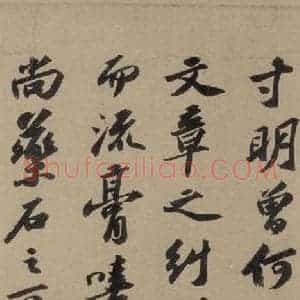 寸明曾何
文章之糾
而流膏嗟
尚藥石之
shufaziliao.com